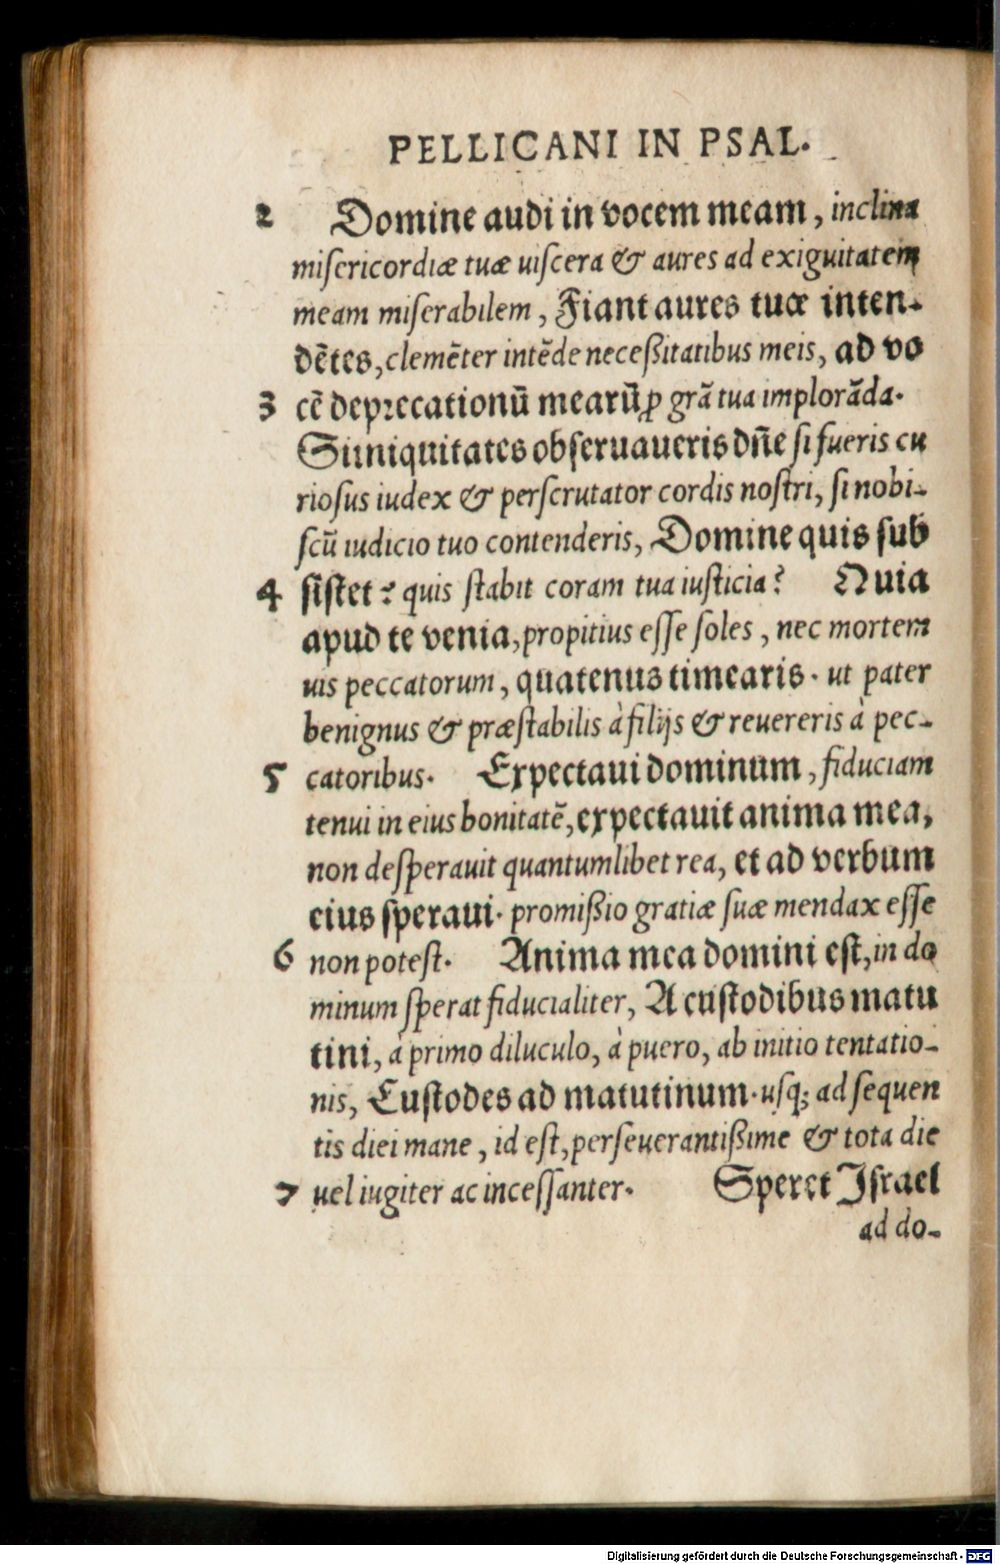 PELLICANI IN PSAL.
2 Domine audi in vocem meam, inclina
misericordiæ tuæ uiscera & aures ad exiguitatem
meam miserabilem, Fiant aures tuæ inten-
dētes, clemēter intēde neceßitatibus meis, ad vo
3 cē deprecationū mearū, ꝓ grā tua implorāda.
Si iniquitates obseruaueris dn̄e si fueris cu
riosus iudex & perscrutator cordis nostri, si nobi-
scū iudicio tuo contenderis, Domine quis sub
4 sistet? quis stabit coram tua iusticia? Quia
apud te venia, propitius esse soles, nec mortem
uis peccatorum, quatenus timearis. ut pater
benignus & præstabilis à filijs & reuereris à pec-
5 catoribus. Expectaui dominum, fiduciam
tenui in eius bonitatē, expectauit anima mea,
non desperauit quantumlibet rea, et ad verbum
eius speraui. promißio gratiæ suæ mendax esse
6 non potest. Anima mea domini est, in do
minum sperat fiducialiter, A custodibus matu
tini, à primo diluculo, à puero, ab initio tentatio-
nis, Custodes ad matutinum. usq; ad sequen
tis diei mane, id est, perseuerantißime & tota die
7 uel iugiter ac incessanter. Speret Israel
ad do-
Digitalisierung gefördert durch die Deutsche Forschungsgemeinschaft - DFG